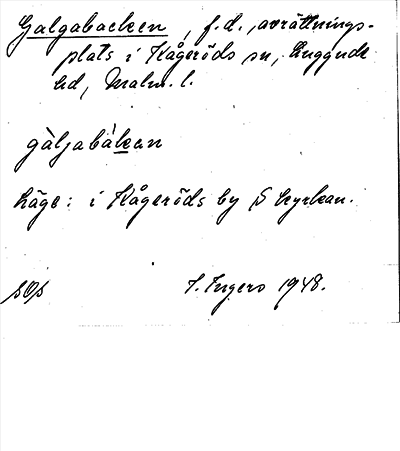 Galgabacken, f.d. avrättnings-
plats i Kågeröds sn, Luggude
hd, Malm. l.
gàljabàkan
Läge: i Kågeröds by S kyrkan.
SOS
I. Ingers 1948.